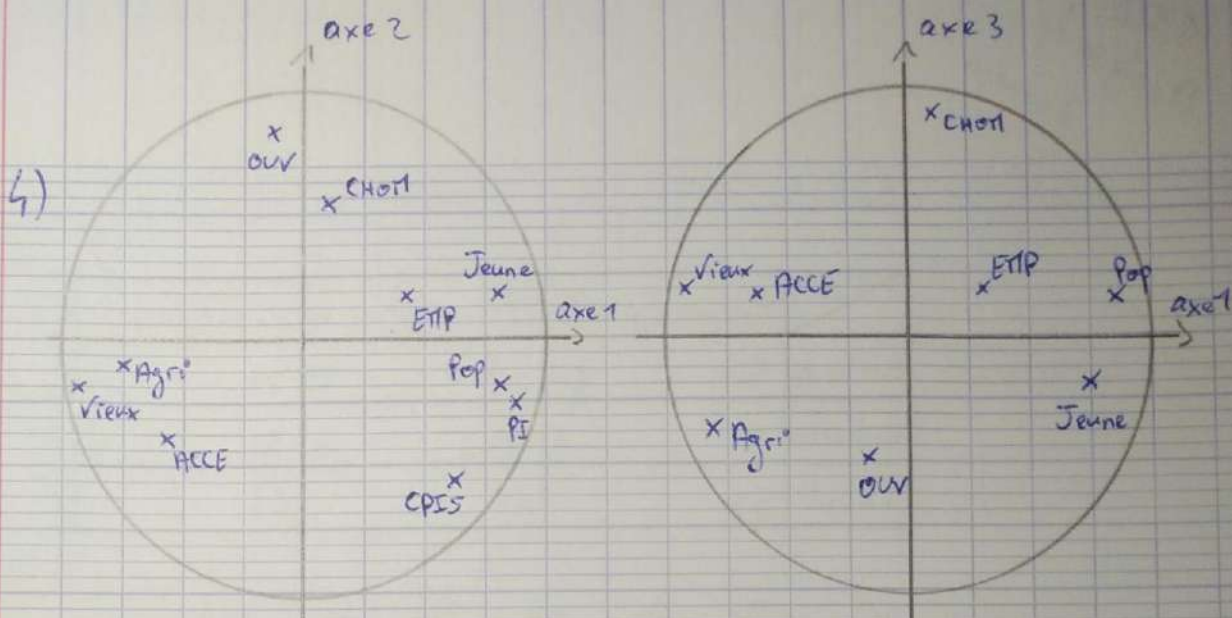 axe 2
OUV
CHOM
4)
Jeune
EMP
axe 1
Agri
Vieux
ACCE
Pop
PI
CPIS
axe 3
CHOM
Vieux
ACCE
EMP
Pop
axe 1
Jeune
Agri
OUV